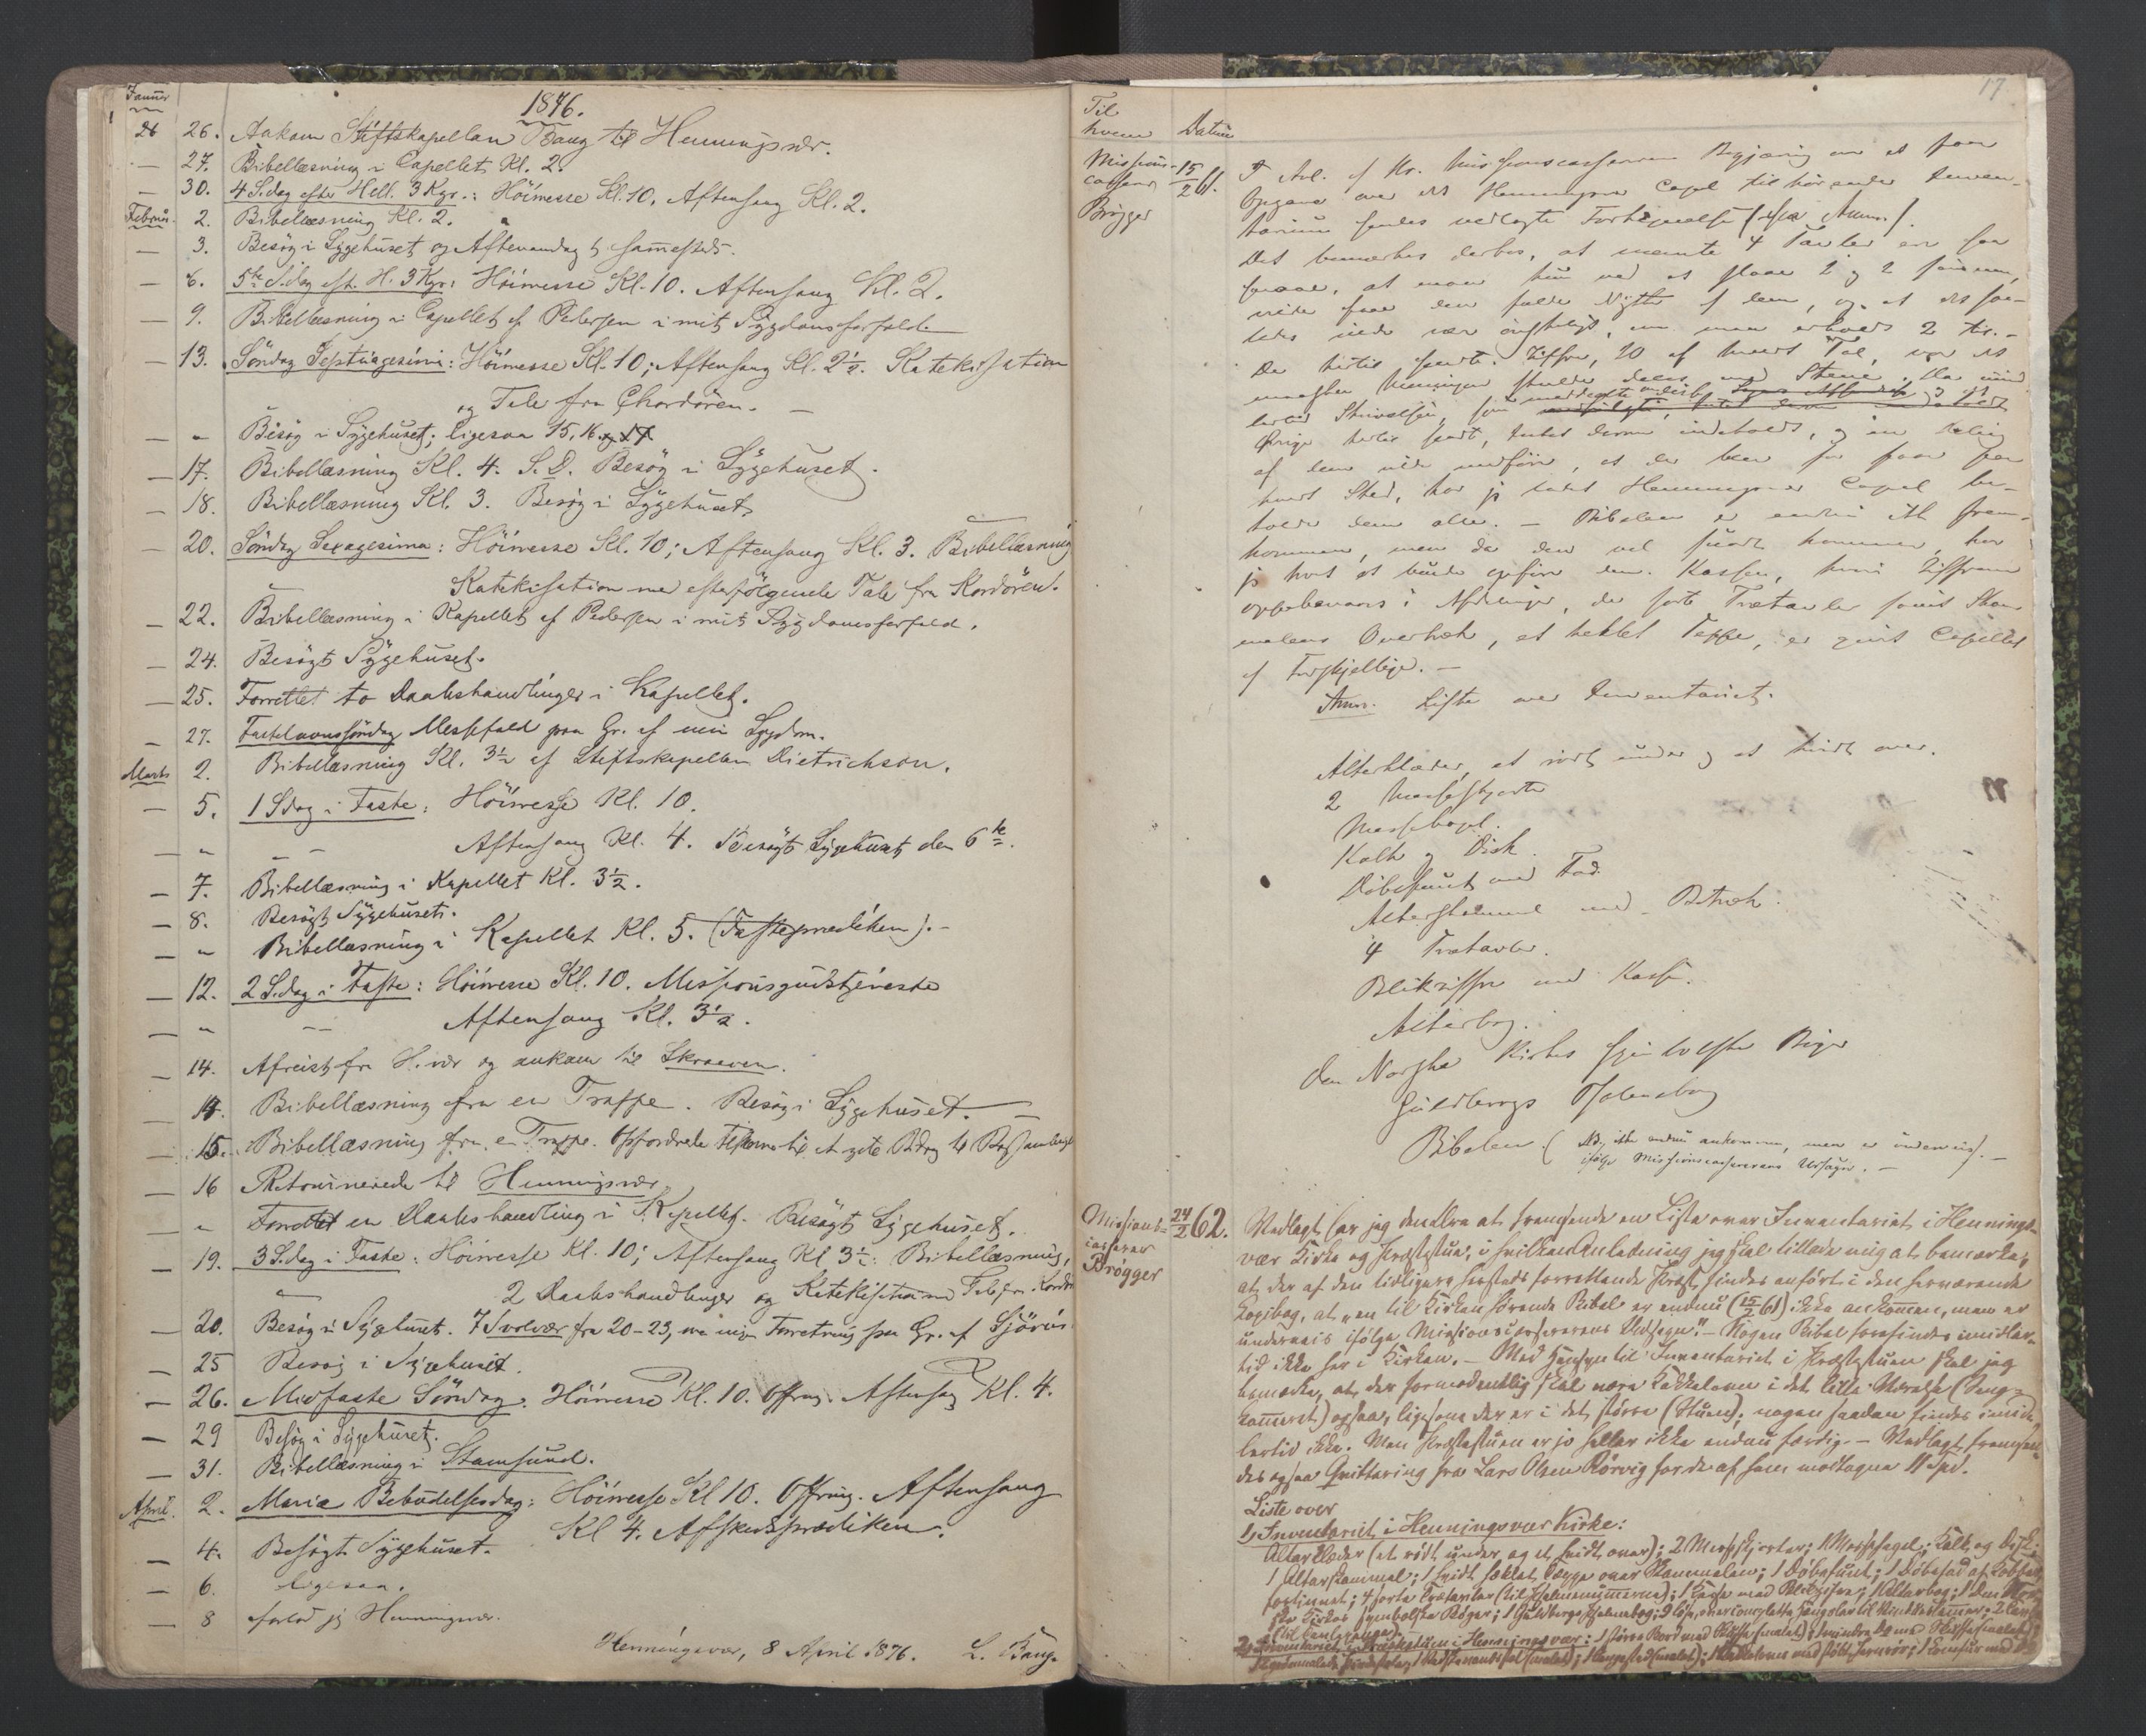 Januar
1876.
26 26. Ankom Stiftskapellan Bang til Henningsvær.
— 27. Bibellæsning i Capellet Kl. 2.
— 30. 4 S.dag efter Hell. 3 Kgr.: Höimesse Kl. 10. Aftensang Kl. 2.
Februar 2. Bibellæsning Kl. 2.
— 3. Besög i Sygehuset og Aftenandagt sammesteds.
— 6. 5te S.dag eft. H. 3 Kgr: Höimesse Kl. 10. Aftensang Kl. 2.
— 9. Bibellæsning i Capellet af Pedersen i mit Sygdomsforfald.
— 13. Söndag Septuagesima: Höimesse Kl. 10; Aftensang Kl. 2½. Katekisation
og Tale fra Chordören. —
— " Besög i Sygehuset; ligesaa 15, 16 og 17
— 17. Bibellæsning Kl. 4. S. D. Besög i Sygehuset.
— 18. Bibellæsning Kl. 3. Besög i Sygehuset.
— 20. Söndag Sexagesima: Höimesse Kl. 10; Aftensang Kl. 3. Bibellæsning
Katekisation med efterfölgende Tale fra Kordören.
— 22. Bibellæsning i Kapellet af Pedersen i mit Sygdomsforfald.
— 24. Besögt Sygehuset.
— 25. Forrettet to Daabshandlinger i Kapellet.
— 27. Fastelavnssöndag Messefald paa Gr. af min Sygdom.
Marts 2. Bibellæsning Kl. 3½ af Stiftskapellan Dietrichson.
— 5. 1 Sdag i Faste: Höimesse Kl. 10.
— " — Aftensang Kl. 4. Besögt Sygehuset den 6te.
— 7. Bibellæsning i Kapellet Kl. 3½.
— 8. Besögt Sygehuset.
— " Bibellæsning i Kapellet Kl. 5. (Fasteprædiken). —
— 12. 2 S.dag i Faste: Höimesse Kl. 10. Missionsgudstjeneste
— " — Aftensang Kl. 3½.
— 14. Afreist fra H.vær og ankom til Skraaven.
— 14. Bibellæsning fra en Trappe. Besög i Sygehuset.
— 15. Bibellæsning fra en Trappe. Opfordrede til at yde Bidrag til
— 16 Retournerede til Henningsvær.
— " Forrettet en Daabshandling i Kapellet. Besögt Sygehuset.
— 19. 3 S.dag i Faste: Höimesse Kl. 10; Aftensang Kl 3½: Bibellæsning,
2 Daabshandlinger og Katekisation med Tale fra Kordör
— 20. Besög i Sygehuset. I Svolvær fra 20–23, men ingen Forretning paa Gr. af Sjörus.
— 25 Besög i Sygehuset.
— 26. Midfaste Söndag: Höimesse Kl. 10. Offring. Aftensang Kl. 4.
— 29 Besög i Sygehuset.
— 31. Bibellæsning i Stamsund.
April. 2. Mariæ Bebudelsesdag: Höimesse Kl 10. Offring. Aftensang
Kl 4. Afskedsprædiken.
— 4. Besögt Sygehuset.
— 6. ligesaa.
— 8 forlod jeg Henningsvær.
Henningsvær, 8 April 1876. L. Bang.
17
Til
hvem Datum
Missions-
casserer
Brögger
15/2 61.
Hr. Missionscassererens Begjæring om at faae
Opgave over det Henningsvær Capel tilhörende Inven-
tarium sendes vedlagte Fortegnelse (efter Anm.).
Det bemærkes derhos, at nævnte 4 Tavler ere saa
smaae, at man kun ved at slaae 2 og 2 sammen,
vilde faae den fulde Nytte af dem, og at det saa-
ledes vilde være önskeligt, om man erholdt 2 til. —
De hertil sendte Ziffre, 20 af hvert Tal, var det
maaskee Meningen skulde deles med Stene. Da imid-
lertid Skrivelsen, som
Övrige hertil sendt, Intet derom indeholdt, og en Deling
af dem vilde medföre, at der blev for faae paa
hvert Sted, har jeg ladet Henningsvær Capel be-
holde dem alle. — Bibelen er endnu ikke frem-
kommen, men da den vel snart kommer, har
jeg troet at burde opföre den. Kassen, hvori Ziffrene
opbevares i Afdelinger, de sorte Trætavler samt Skam-
melens Overtræk, et heklet Teppe, er givet Capellet
af Forskjellige. —
Anm. Liste over Inventariet.
Alterklæder, et rödt under og et hvidt over.
2 Messeskjorter
Messehagel.
Kalk og Disk.
Döbefunt med Fad.
Alterskammel med Betræk.
4 Trætavler.
Blikziffre med Kasse.
Alterbog.
Den Norske Kirkes symbolske Böger
Guldbergs Psalmebog
Bibelen (NB. ikke endnu ankommen, men er underveis
ifölge Missionscassererens Udsagn. —
Missions-
casserer
Brøgger
24/2 62.
Vedlagt har jeg den Ære at fremsende en Liste over Inventariet i Hennings-
vær Kirke og Præstestue, i hvilken Anledning jeg skal tillade mig at bemærke,
at der af den tidligere hersteds forrettende Præst findes anført i den herværende
Copibog, at „en til Kirken hörende Bibel er endnu (15/2 61) ikke ankommen, men er
underveis ifölge Missionscassererens Udsagn." — Nogen Bibel forefindes imidler-
tid ikke her i Kirken. — Med Hensyn til Inventariet i Præstestuen skal jeg
bemærke, at der formodentlig skal være Kakkelovn i det lille Værelse (Seng-
kammeret) ogsaa, ligesom der er i det större (Stuen); nogen saadan findes imid-
lertid ikke. Men Præstestuen er jo heller ikke endnu færdig. — Vedlagt fremsen-
des ogsaa Qvittering fra Lars Olsen Rörvig for de af ham modtagne 11 Spd.
Liste over
1) Inventariet i Henningsvær Kirke:
Alterklæder (et rödt under og et hvidt over); 2 Messeskjorter; 1 Messehagel; Kalk og Disk;
1 Alterskammel; 1 hvidt heklet Teppe over Skammelen; 1 Döbefunt; 1 Döbefad af Kobber,
fortinnet; 4 sorte Trætavler (til Psalmenummerne); 1 Kasse med Blikziffre; 1 Alterbog; 1 Den Nor-
ske Kirkes symbolske Böger; 1 Guldbergs Psalmebog;
2) Inventariet i Præstestuen i Henningsvær: 1 större Bord med